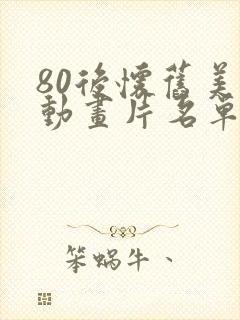 80後懷舊美
動畫片名單
笨蝸牛、